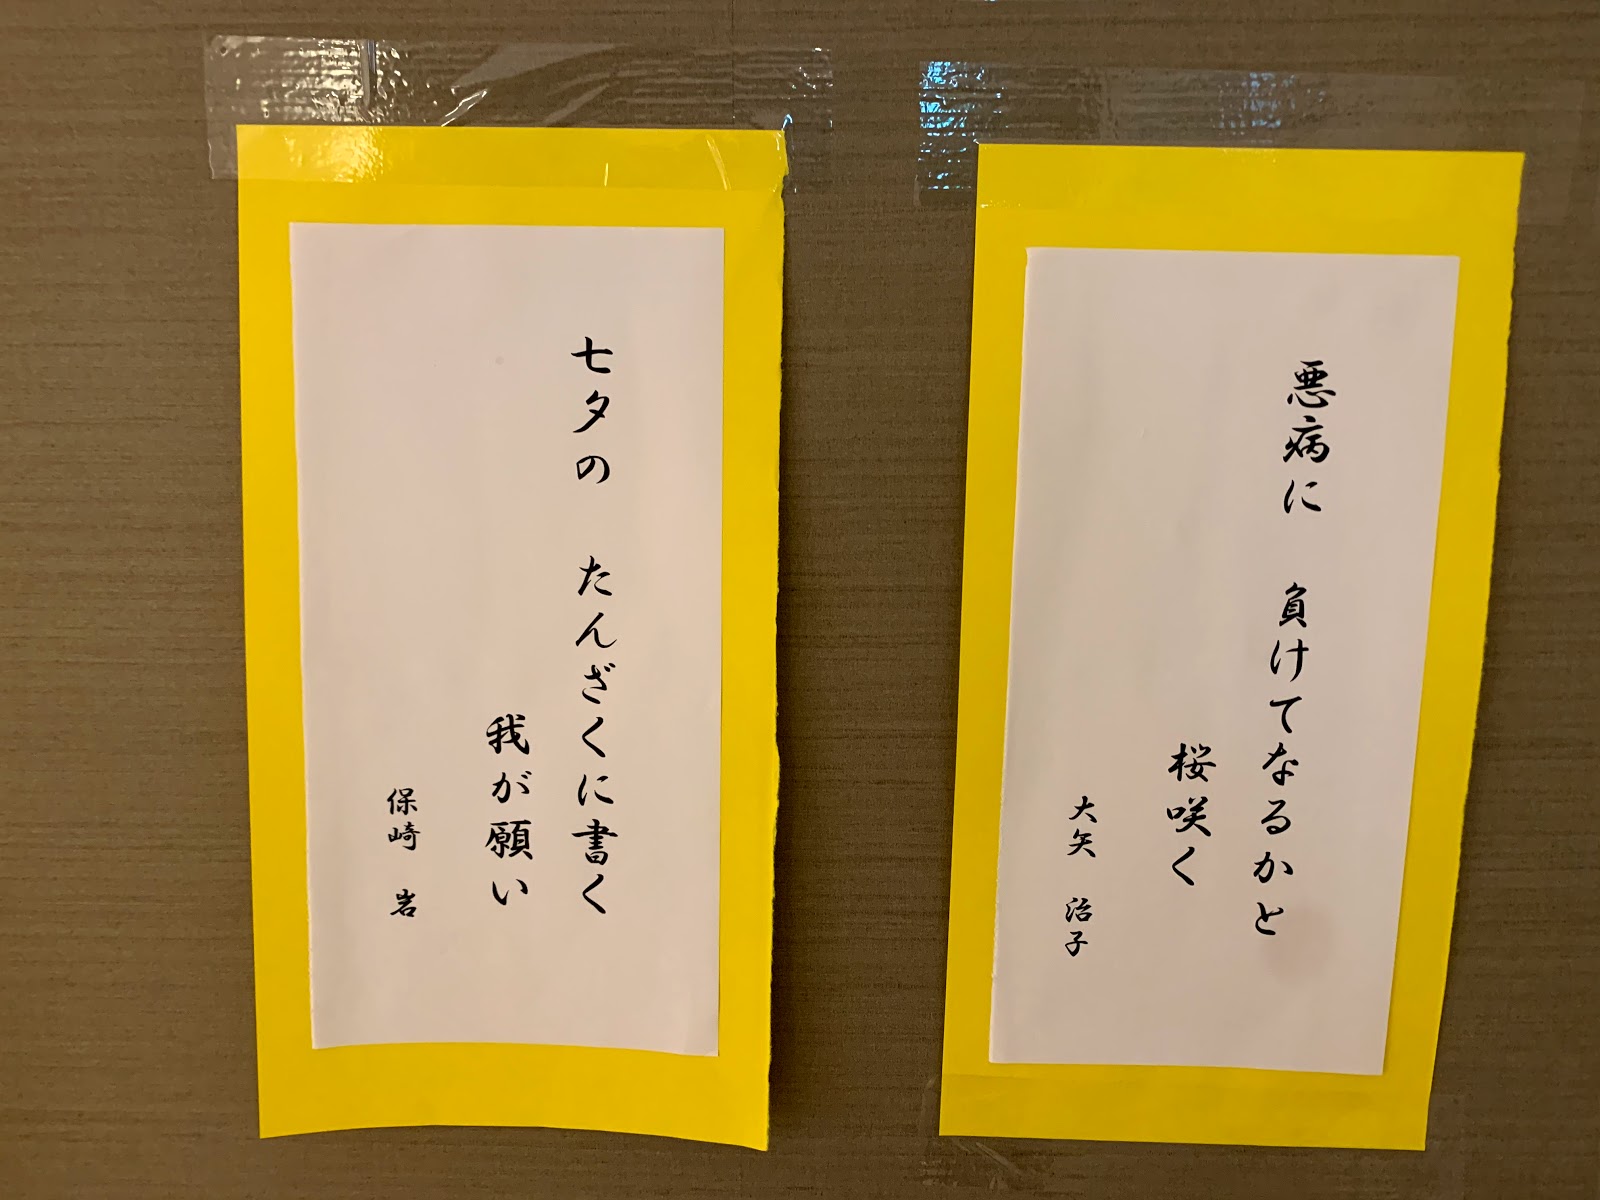 悪病に　負けてなるかと
桜咲く
大矢　治子
七夕の　たんざくに書く
我が願い
保崎　岩